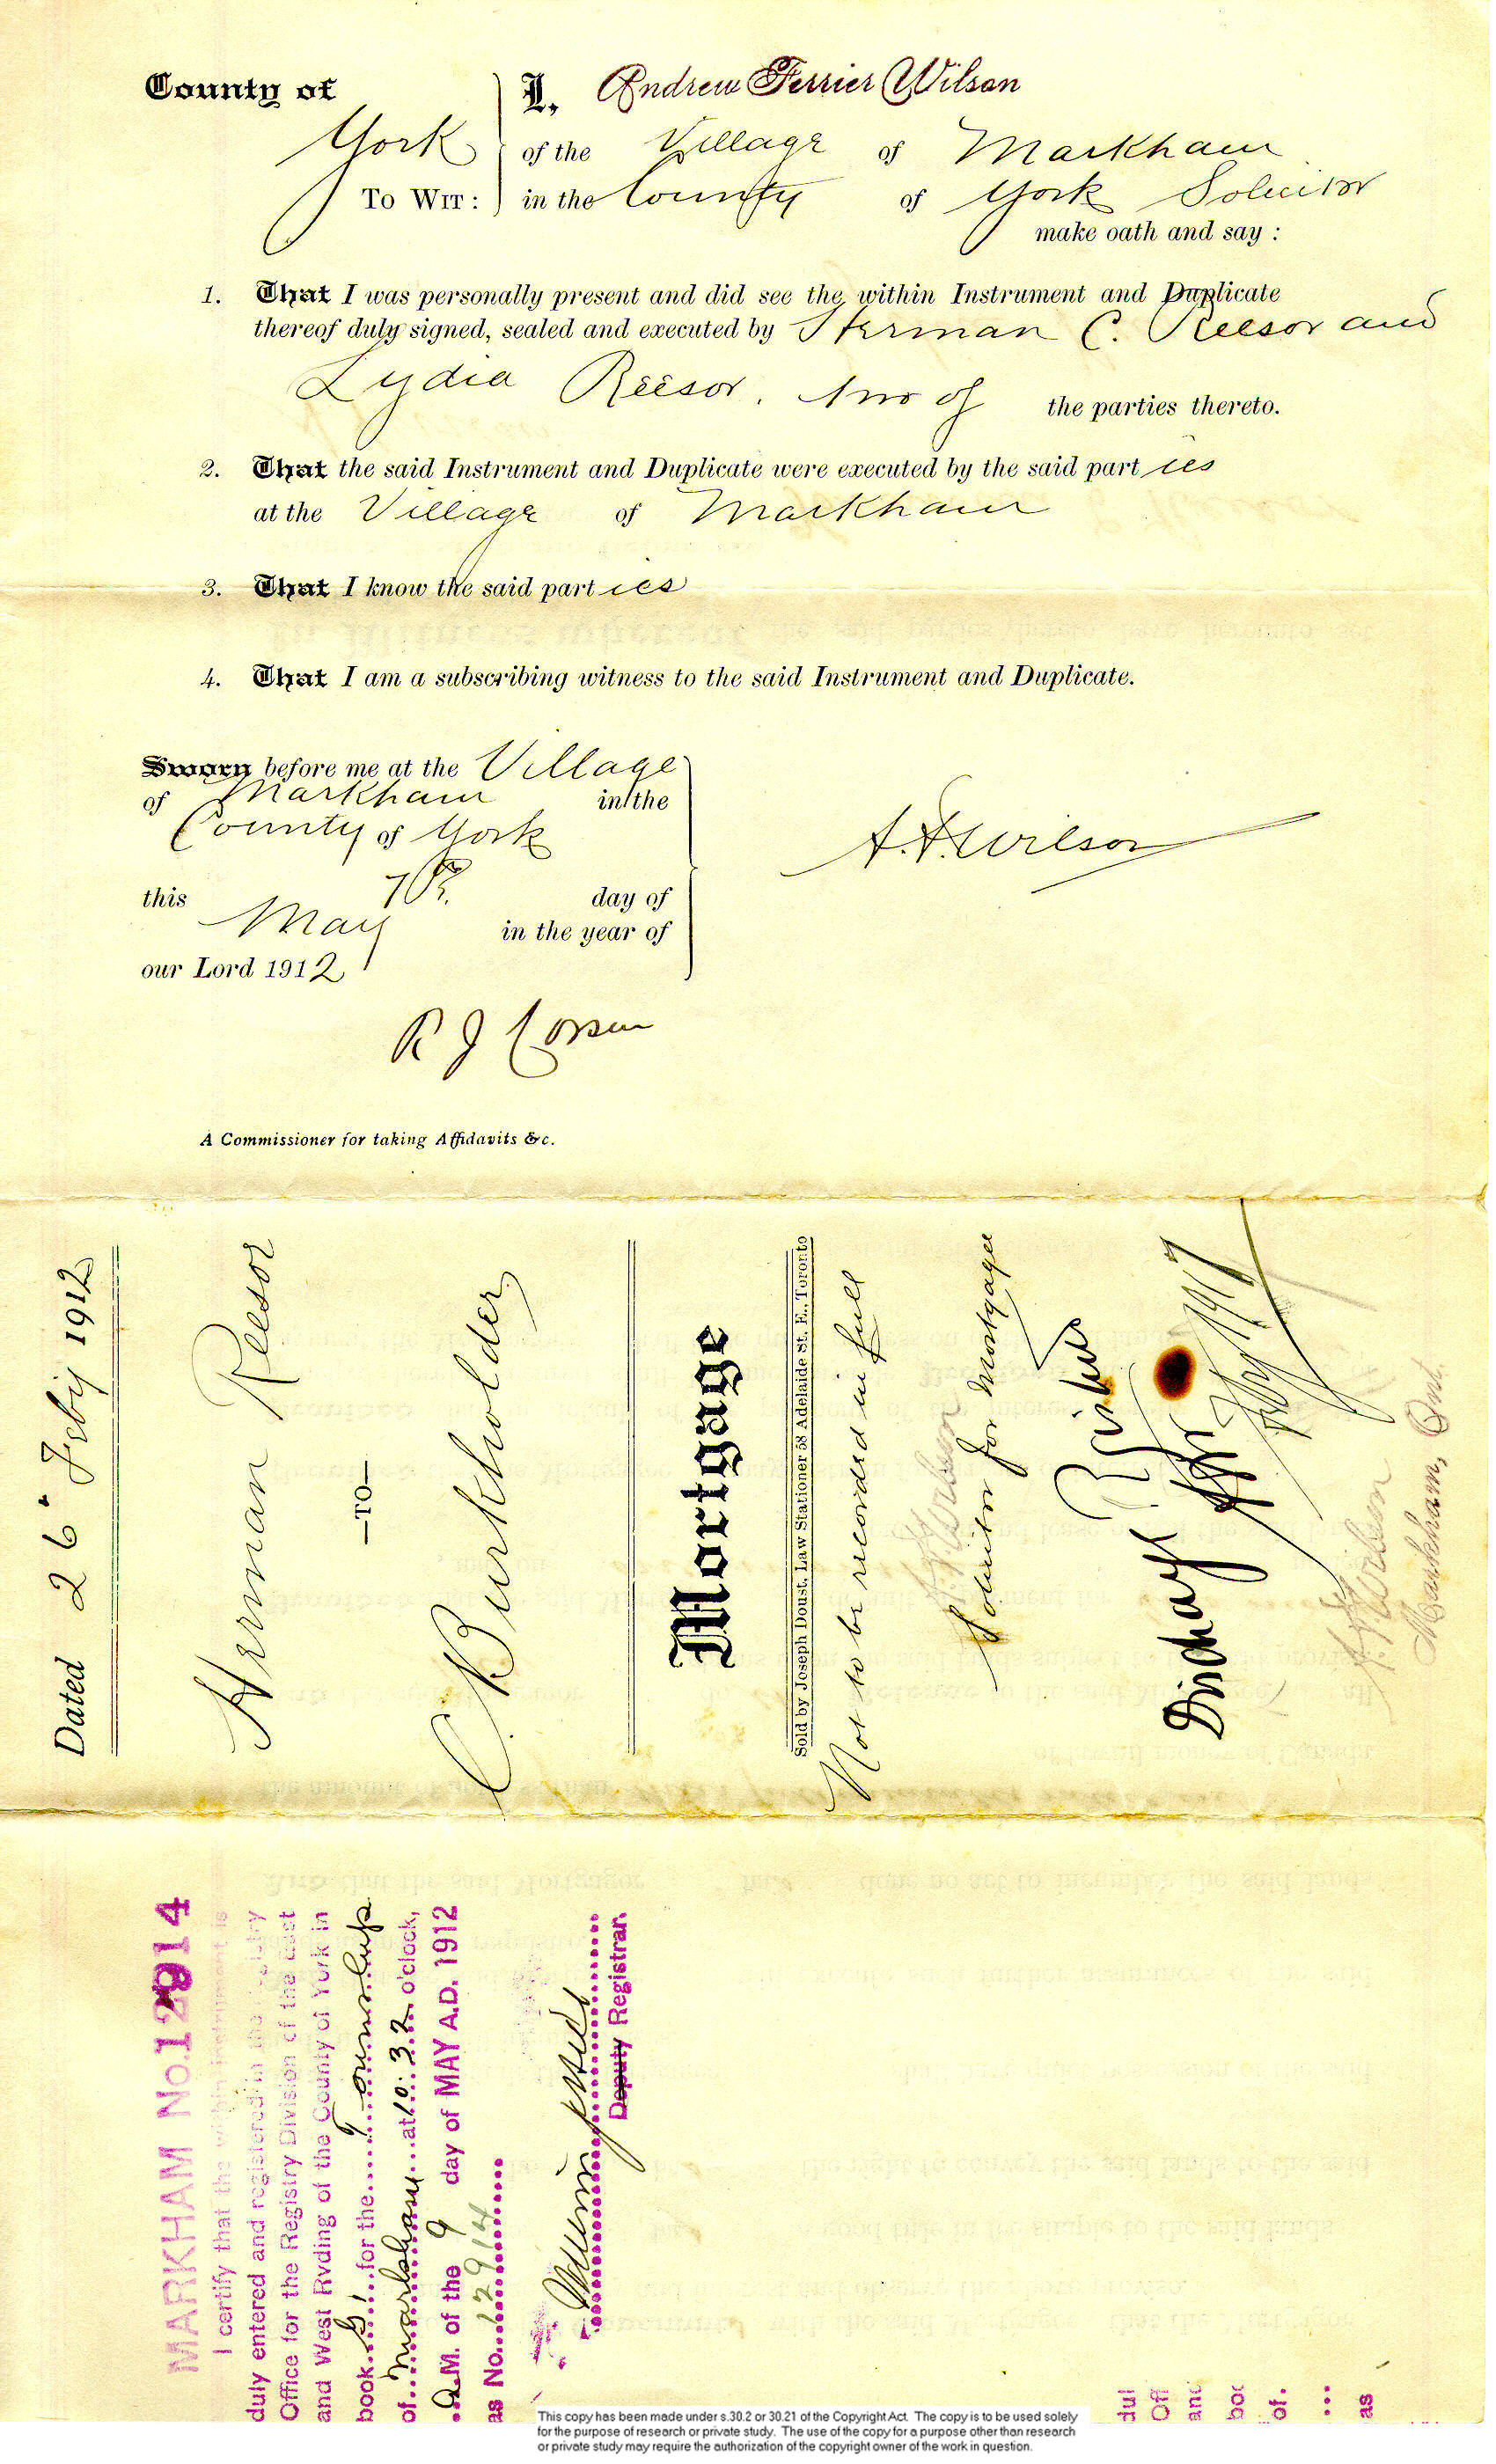 County of
York
To Wit:
I, Andrew Ferrier Wilson
of the Village of Markham
in the County of York Solicitor
make oath and say :
1. That I was personally present and did see the within Instrument and Duplicate
thereof duly signed, sealed and executed by Herman C. Reesor and
Lydia Reesor, two of the parties thereto.
2. That the said Instrument and Duplicate were executed by the said parties
at the Village of Markham
3. That I know the said parties
4. That I am a subscribing witness to the said Instrument and Duplicate.
Sworn before me at the Village
of Markham in the
County of York
this 7th day of
May in the year of
our Lord 1912
A.F. Wilson
R J Corson
A Commissioner for taking Affidavits &c.
Dated 26" Feby 1912
Herman Reesor
—TO—
C. Burkholder
Mortgage
Sold by Joseph Doust, Law Stationer 58 Adelaide St. E., Toronto
Not to be recorded in full
A.F. Wilson
Solicitor for Mortgagee
Discharge
Feby 1917
A.F. Wilson
Markham, Ont.
MARKHAM No. 12914
I certify that the within instrument is
duly entered and registered in the registry
Office for the Registry Division of the East
and West Ryding of the County of York in
book G1 for the Township
of Markham at 10:32 o'clock,
a.M. of the 9 day of MAY A.D. 1912
as No. 12914
Deputy Registrar.
dul
Off
and
boo
of.
...
as
This copy has been made under s.30.2 or 30.21 of the Copyright Act. The copy is to be used solely
for the purpose of research or private study. The use of the copy for a purpose other than research
or private study may require the authorization of the copyright owner of the work in question.